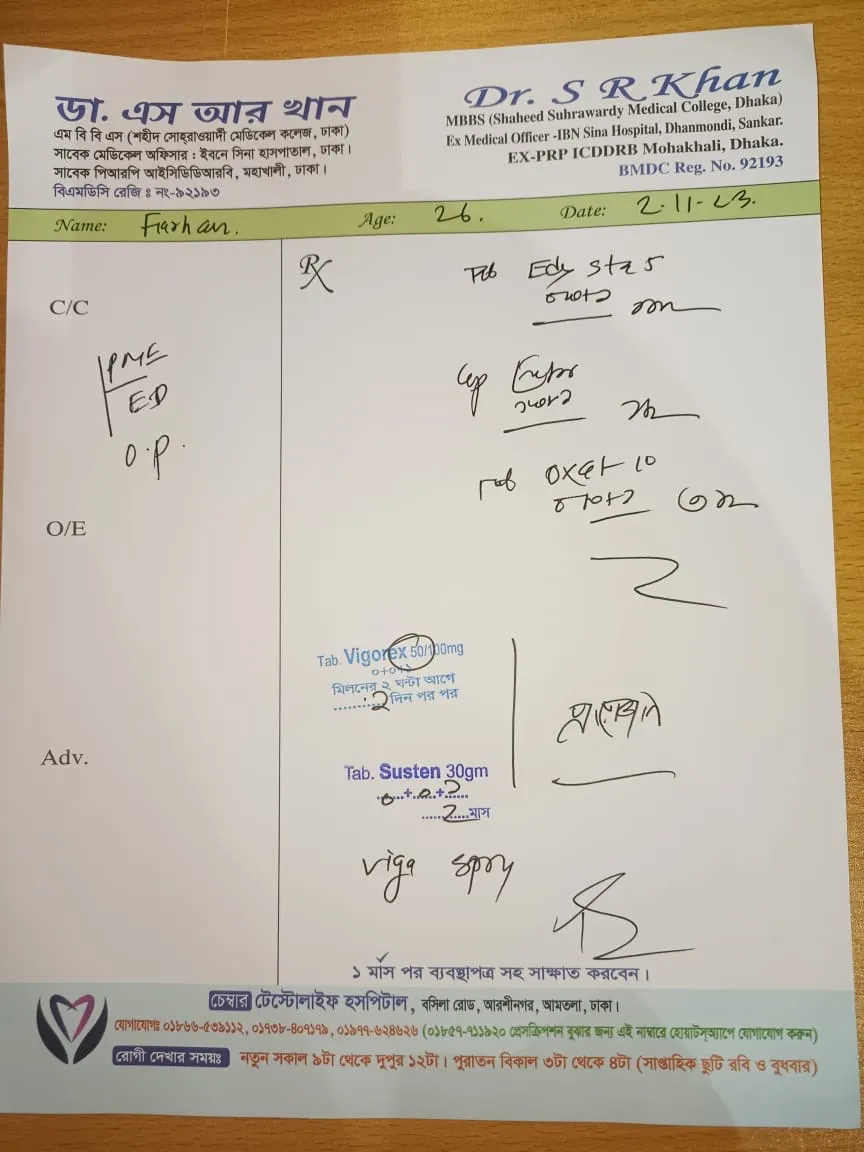 ডা. এস আর খান
এম বি বি এস (শহীদ সোহ্‌রাওয়ার্দী মেডিকেল কলেজ, ঢাকা)
সাবেক মেডিকেল অফিসার : ইবনে সিনা হাসপাতাল, ঢাকা।
সাবেক পিআরপি আইসিডিডিআরবি, মহাখালী, ঢাকা।
বিএমডিসি রেজি ঃ নং-৯২১৯৩
Dr. S R Khan
MBBS (Shaheed Suhrawardy Medical College, Dhaka)
Ex Medical Officer -IBN Sina Hospital, Dhanmondi, Sankar.
EX-PRP ICDDRB Mohakhali, Dhaka.
BMDC Reg. No. 92193
Name: Farhan. Age: 26. Date: 2-11-23.
C/C
PME
ED
O.P.
O/E
Adv.
Rx
Tab Edy sta 5
০+০+১
Cap
১+০+১
Tab OXAT 10
০+০+১ ৩
Tab. Vigorex 50/100mg
০+০+১
মিলনের ২ ঘন্টা আগে
......২ দিন পর পর
Tab. Susten 30gm
০+০+১
২ মাস
Viga Spray
১ মাস পর ব্যবস্থাপত্র সহ সাক্ষাত করবেন।
চেম্বার টেস্টোলাইফ হসপিটাল, বসিলা রোড, আরশীনগর, আমতলা, ঢাকা।
যোগাযোগঃ ০১৮৬৬-৫৩৯১১২, ০১৭৩৮-৪০৭১৭৯, ০১৯৭৭-৬২৪৬২৬ (০১৮৫৭-৭১১৯২০ প্রেসক্রিপশন বুঝার জন্য এই নাম্বারে হোয়াটস্অ্যাপে যোগাযোগ করুন)
রোগী দেখার সময়ঃ নতুন সকাল ৯টা থেকে দুপুর ১২টা। পুরাতন বিকাল ৩টা থেকে ৪টা (সাপ্তাহিক ছুটি রবি ও বুধবার)